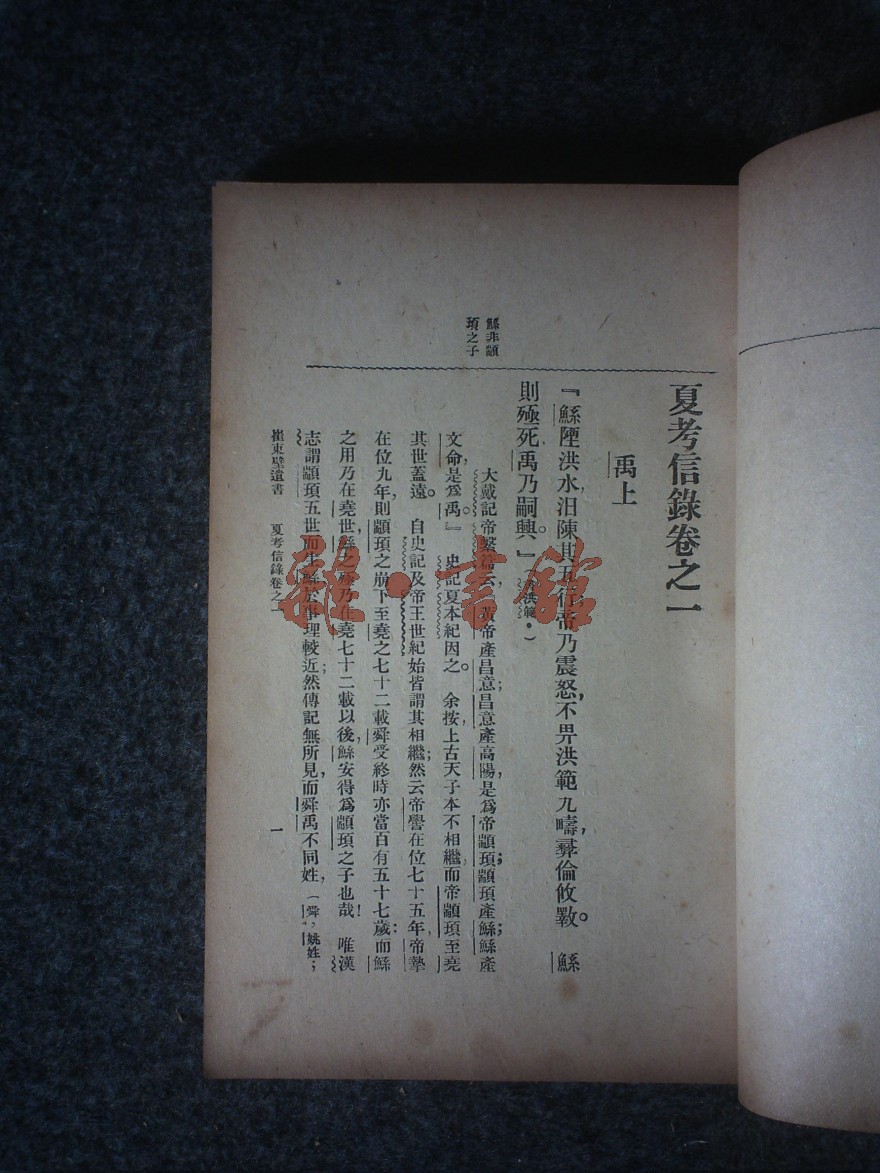 夏考信錄卷之一
禹上
『鯀陻洪水,汨陳其五行,帝乃震怒,不畀洪範九疇,彝倫攸斁。 鯀
則殛死,禹乃嗣興。』(洪範。)
鯀非顓
頊之子
大戴記帝繫篇云,黃帝產昌意;昌意產高陽,是爲帝顓頊;顓頊產鯀;鯀產
文命,是爲禹。』 史記夏本紀因之。 余按上古天子本不相繼,而帝顓頊至堯
其世蓋遠。 自史記及帝王世紀始皆謂其相繼;然云帝嚳在位七十五年,帝摯
在位九年,則顓頊之崩下至堯之七十二載舜受終時亦當百有五十七歲:而鯀
之用乃在堯世,鯀之乃在堯七十二載以後,鯀安得爲顓頊之子也哉! 唯漢
志謂顓頊五世而生鯀,於事理較近;然傳記無所見,而舜禹不同姓,(舜,姚姓;
崔東壁遺書 夏考信錄卷之一 一
雜·書館